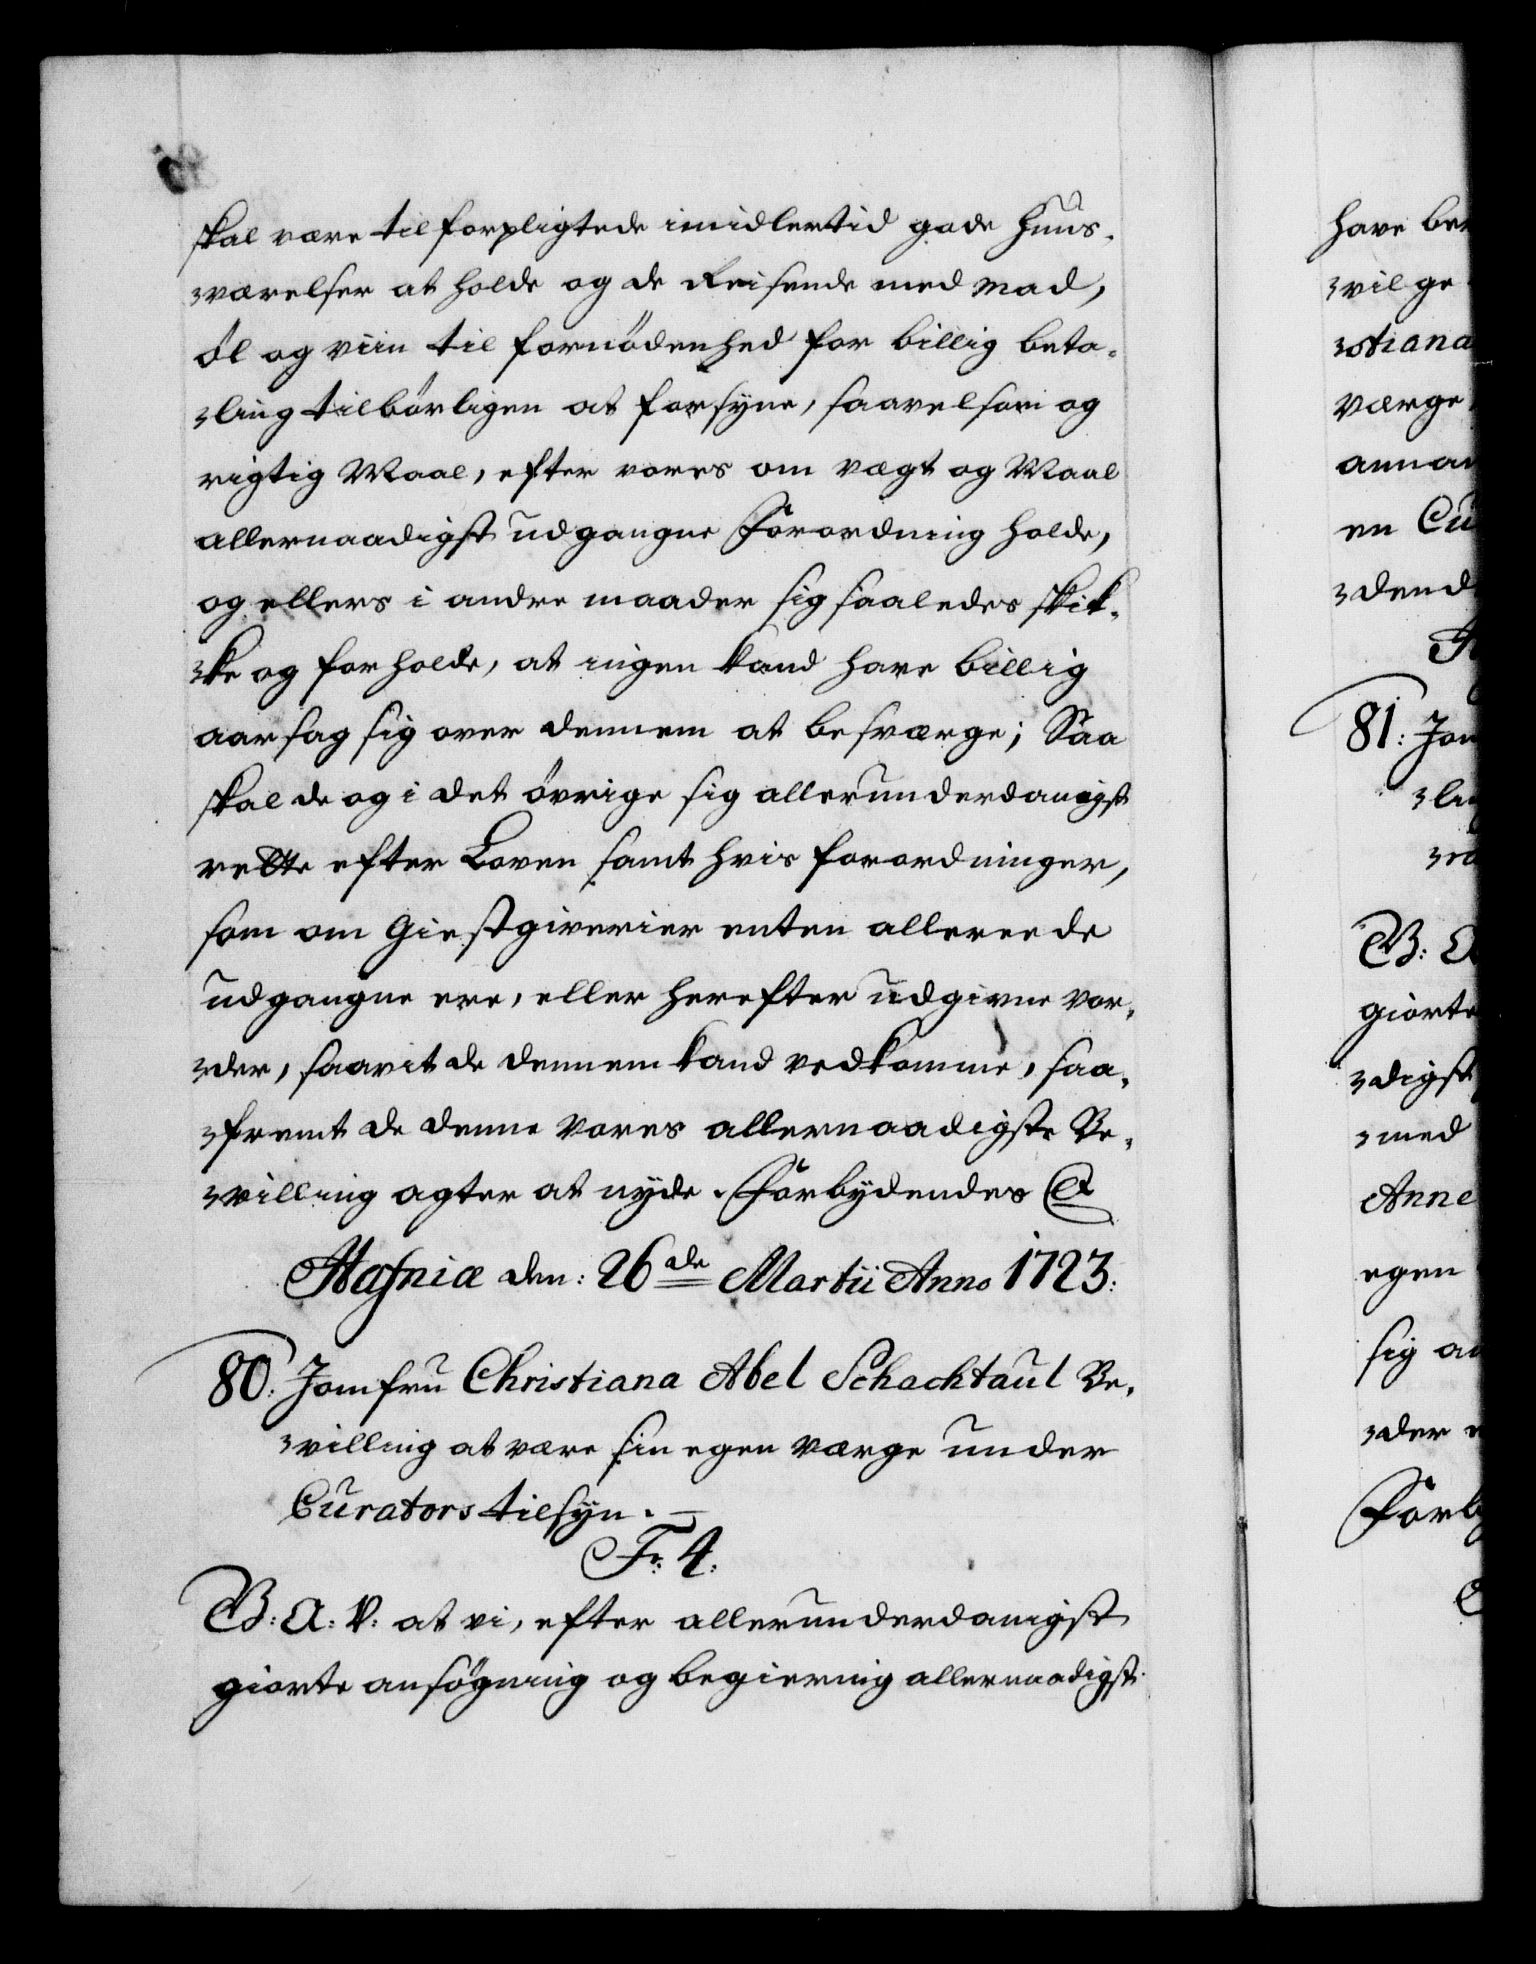 skal være tilforpligtede imidlertid gode Huus-
-værelser at holde og de Reisende med Mad,
Øl og Viin til fornødenhed for billig beta-
-ling tilbørligen at forsyne, saavelsom og
rigtig Maal, efter vores om vægt og Maal
allernaadigst udgangne Forordning holde,
og ellers i andre maader sig saaledes skik-
-ke og forholde, at ingen kand have billig
aarsag sig over dennem at besværge; Saa
skal de og i det øvrige sig allerunderdanigst
rette efter Loven samt hvis forordninger,
som om Giestgiverier enten allereede
udgangne ere, eller herefter udgivne vor-
-der, saavit de dennem kand vedkomme, saa-
-fremt de denne Vores allernaadigste Be-
-villing agter at nyde. Forbydendes &
Hafniæ den: 26de Martii Anno 1723:
80. Jomfru Christiana Abel Schachtaul Be-
-villing at være sin egen Værge under
Curators tilsyn. —
Fr: 4:
B: A: V: at vi, efter allerunderdanigst
giorte ansøgning og begiering allernaadigst
have
-vilge
-stiana
Værge
en
81:
giorte
-digst
-med
Anne
egen
sig
-der